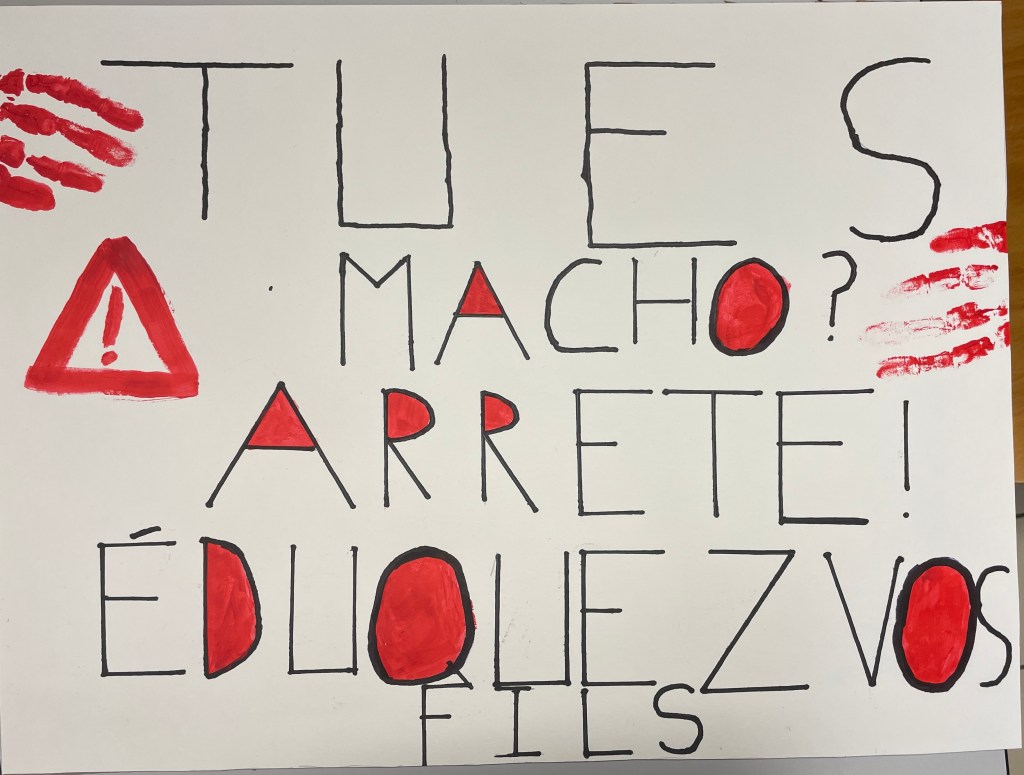 TU ES
MACHO ?
ARRETE !
ÉDUQUEZ VOS
FILS